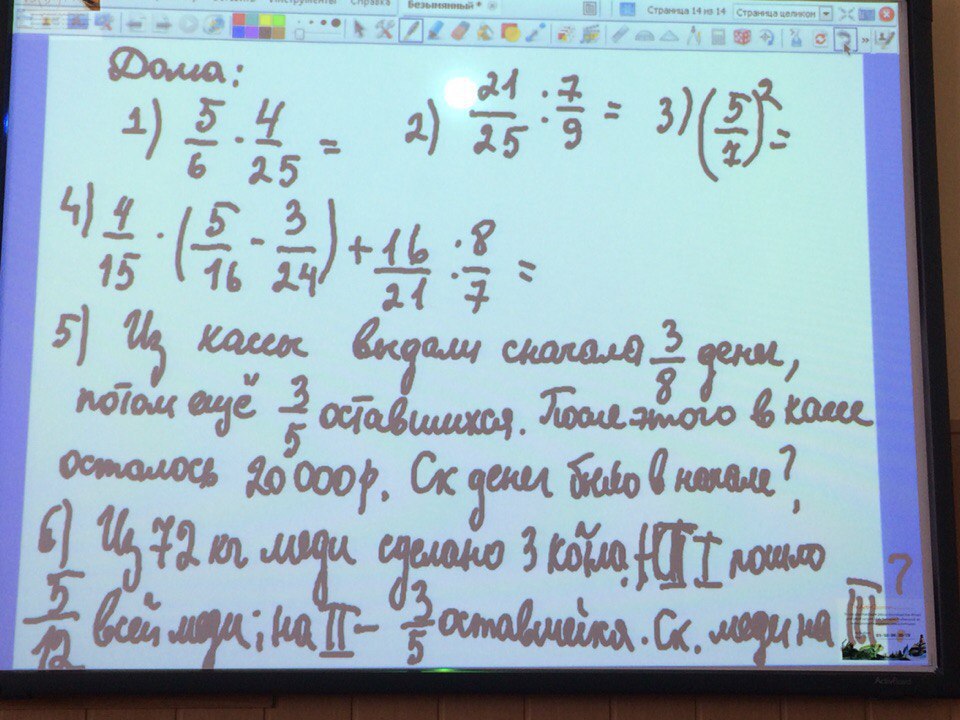 Инструменты Справка
Безымянный *
Страница 14 из 14
Страница целиком
Дома:
1) 5/6 · 4/25 = 2) 21/25 : 7/9 = 3) (5/7)² =
4) 4/15 · (5/16 - 3/24) + 16/21 · 8/7 =
5) Из кассы выдали сначала 3/8 денег,
потом ещё 3/5 оставшихся. После этого в кассе
осталось 20 000 р. Ск денег было в начале?
6) Из 72 кг меди сделано 3 котла. На I пошло
5/12 всей меди; на II - 3/5 оставшейся. Ск. меди на III ?
ActivBoard